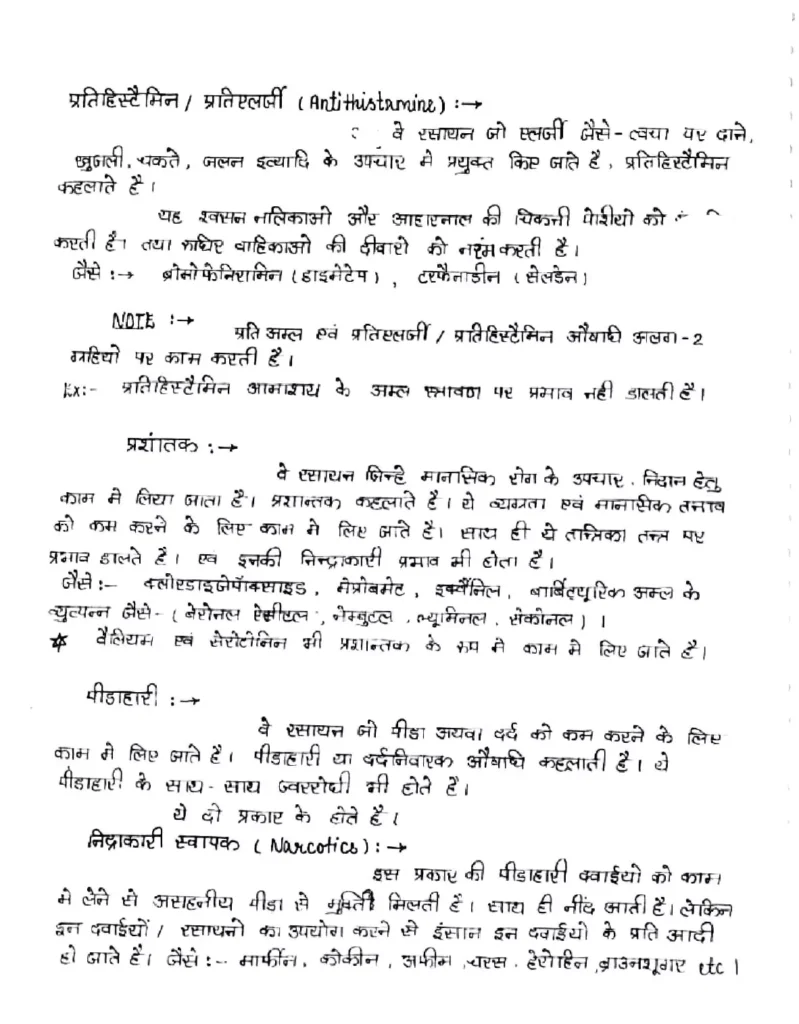 प्रतिहिस्टैमिन / प्रतिएलर्जी ( Antithistamine ) :→
वे रसायन जो एलर्जी जैसे - त्वचा पर दाने,
खुजली, चकते, जलन इत्यादि के उपचार मे प्रयुक्त किए जाते है, प्रतिहिस्टैमिन
कहलाते है।
यह श्वसन नलिकाओ और आहारनाल की चिकनी पेशीयो को
करती है। तथा रूधिर वाहिकाओ की दीवारो को नरम करती है।
जैसे :→ ब्रोमोफेनिरामिन ( डाइमेटेप ) , टरफेनाडीन ( सेलडेन )
NOTE :→
प्रति अम्ल एवं प्रतिएलर्जी / प्रतिहिस्टैमिन औषधि अलग - 2
ग्राहियो पर काम करती है।
Ex:- प्रतिहिस्टैमिन आमाशय के अम्ल स्त्रावण पर प्रभाव नही डालती है।
प्रशांतक :→
वे रसायन जिन्हे मानसिक रोग के उपचार, निदान हेतु
काम मे लिया जाता है। प्रशान्तक कहलाते है। ये व्यग्रता एवं मानसिक तनाव
को कम करने के लिए काम मे लिए जाते है। साथ ही ये तान्त्रिका तन्त्र पर
प्रभाव डालते है। एवं इनकी निन्द्राकारी प्रभाव भी होता है।
जैसे :- क्लोरडाइजेपॉक्साइड, मेप्रोबमेट, इक्वैनिल, बार्बिट्यूरिक अम्ल के
व्युत्पन्न जैसे - ( वेरोनल ऐमीटल, नेम्बुटल, ल्यूमिनल, सेकोनल ) ।
☆ वैलियम एवं सेरोटोनिन भी प्रशान्तक के रूप मे काम मे लिए जाते है।
पीडाहारी :→
वे रसायन जो पीडा अथवा दर्द को कम करने के लिए
काम मे लिए जाते है। पीडाहारी या दर्दनिवारक औषाधि कहलाती है। ये
पीडाहारी के साथ - साथ ज्वररोधी भी होते है।
ये दो प्रकार के होते है।
निद्राकारी स्वापक ( Narcotics ) :→
इस प्रकार की पीडाहारी दवाईयो को काम
मे लेने से असहनीय पीडा से मुक्ति मिलती है। साथ ही नींद आती है। लेकिन
इन दवाईयों / रसायनो का उपयोग करने से इंसान इन दवाईयो के प्रति आदी
हो जाते है। जैसे :- मार्फीन, कोकीन, अफीम, चरस, हेरोहिन, ब्राउनशूगर etc ।